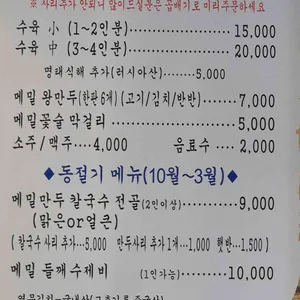 ※ 사리추가 안되니 많이드실분은 곱배기로 미리주문하세요
수육 小 (1~2인분) 15,000
수육 中 (3~4인분) 20,000
명태식해 추가(러시아산) 5,000
메밀 왕만두(한판 6개) (고기/김치/반반) 7,000
메밀꽃술 막걸리 5,000
소주/맥주 4,000 음료수 2,000
◆동절기 메뉴(10월~3월)◆
메밀만두 칼국수 전골 (2인이상) 9,000
(맑은or얼큰)
(칼국수사리 추가 5,000 만두사리 추가 1개 1,000 햇반 1,500)
메밀 들깨수제비 (1인가능) 10,000